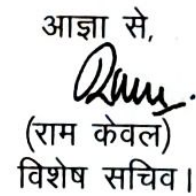 आज्ञा से,
(राम केवल)
विशेष सचिव।